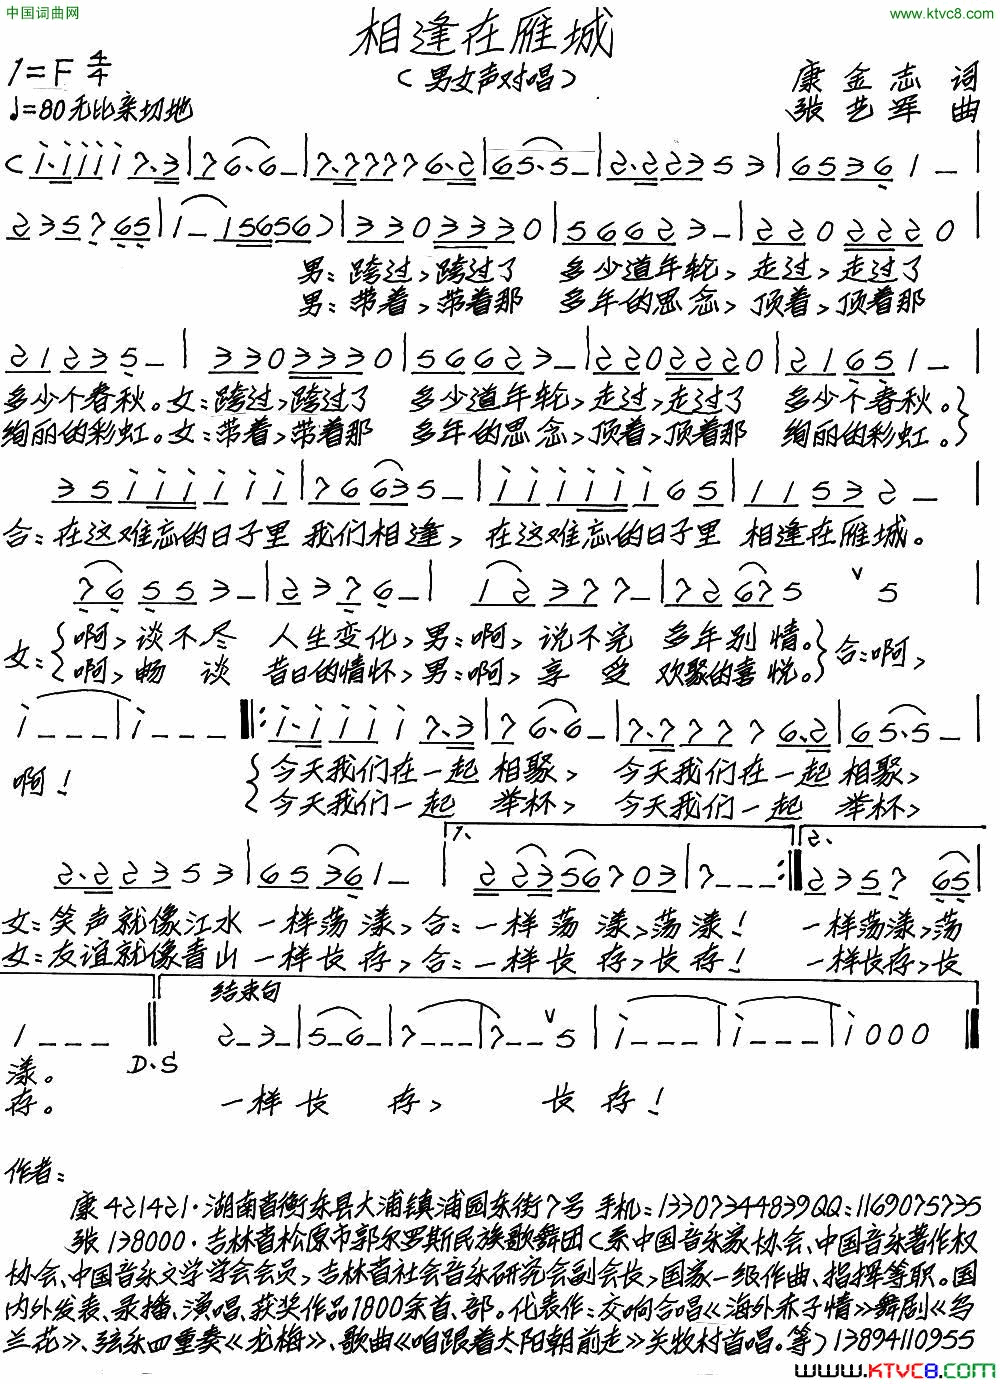 中国词曲网
www.ktvc8.com
相逢在雁城
(男女声对唱)
1=F 4/4
♩=80无比亲切地
康金志 词
张艺军 曲
(i·iiii7·3|76·6–|7·77776·2|65·5–|2·22353|65361––|
235765|1––15656)|3303330|56623–|2202220|
男:跨过,跨过了 多少道年轮,走过,走过了
男:带着,带着那 多年的思念,顶着,顶着那
21235–|3303330|56623–|2202220|21651–|
多少个春秋。女:跨过,跨过了 多少道年轮,走过,走过了 多少个春秋。
绚丽的彩虹。女:带着,带着那 多年的思念,顶着,顶着那 绚丽的彩虹。
35iiiiii|76635–|iiiiii65|11532–|
合:在这难忘的日子里 我们相逢,在这难忘的日子里 相逢在雁城。
76553–|2376–|12377–|72675 ∨ 5|
女:啊,谈不尽 人生变化,男:啊,说不完 多年别情。合:啊,
啊,畅谈 昔日的情怀,男:啊,享受 欢聚的喜悦。
i–––|i–––‖:i·iiii7·3|76·6–|7·77776·2|65·5–|
啊! 今天我们在一起 相聚, 今天我们在一起 相聚,
今天我们一起 举杯, 今天我们一起 举杯,
2·22353|65361–|1.22356703|7–––:‖2.2357 65|
女:笑声就像江水 一样荡漾,合:一样荡漾,荡漾! 一样荡漾,荡
女:友谊就像青山 一样长存,合:一样长存,长存! 一样长存,长
1–––‖ 结束句 2–3–|5–6–|7–––|7––∨5|i–––|i–––|i000‖
漾。 D.S
存。 一样长 存, 长存!
作者:
康421421·湖南省衡东县大浦镇浦园东街7号 手机:13307344839QQ:1169075735
张138000·吉林省松原市郭尔罗斯民族歌舞团(系中国音乐家协会、中国音乐著作权
协会、中国音乐文学学会会员,吉林省社会音乐研究会副会长,国家一级作曲、指挥等职。国
内外发表、录播、演唱、获奖作品1800余首、部。代表作:交响合唱《海外赤子情》舞剧《乌
兰花》、弦乐四重奏《龙梅》、歌曲《咱跟着太阳朝前走》关牧村首唱。等)13894110955
www.KTVC8.com